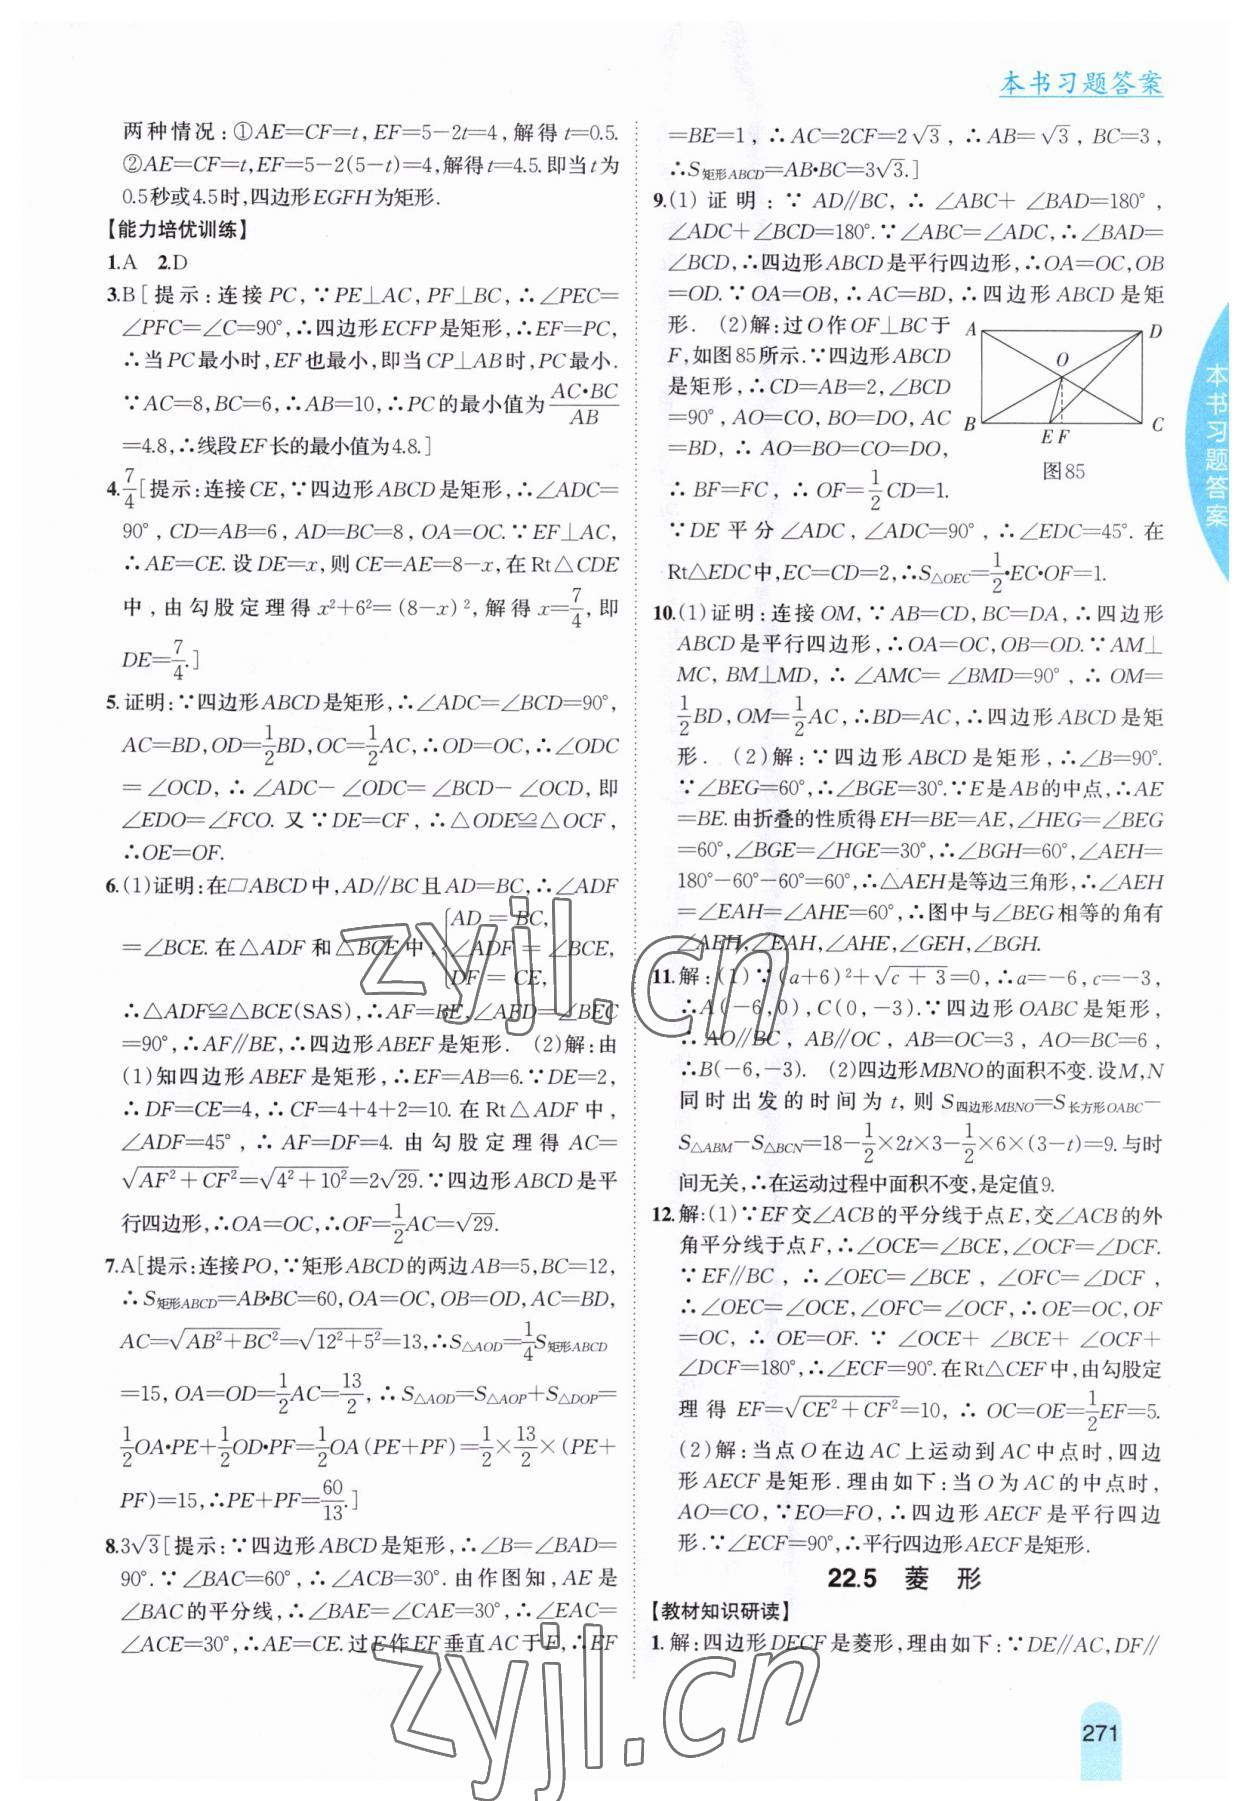 本书习题答案
两种情况:①AE=CF=t,EF=5-2t=4,解得t=0.5.
②AE=CF=t,EF=5-2(5-t)=4,解得t=4.5.即当t为
0.5秒或4.5时,四边形EGFH为矩形.
【能力培优训练】
1.A 2.D
3.B[提示:连接PC,∵PE⊥AC,PF⊥BC,∴∠PEC=
∠PFC=∠C=90°,∴四边形ECFP是矩形,∴EF=PC,
∴当PC最小时,EF也最小,即当CP⊥AB时,PC最小.
∵AC=8,BC=6,∴AB=10,∴PC的最小值为AC•BC/AB
=4.8,∴线段EF长的最小值为4.8.]
4.7/4[提示:连接CE,∵四边形ABCD是矩形,∴∠ADC=
90°,CD=AB=6,AD=BC=8,OA=OC.∵EF⊥AC,
∴AE=CE.设DE=x,则CE=AE=8-x,在Rt△CDE
中,由勾股定理得x²+6²=(8-x)²,解得x=7/4,即
DE=7/4.]
5.证明:∵四边形ABCD是矩形,∴∠ADC=∠BCD=90°,
AC=BD,OD=1/2BD,OC=1/2AC,∴OD=OC,∴∠ODC
=∠OCD,∴∠ADC-∠ODC=∠BCD-∠OCD,即
∠EDO=∠FCO.又∵DE=CF,∴△ODE≌△OCF,
∴OE=OF.
6.(1)证明:在▱ABCD中,AD∥BC且AD=BC,∴∠ADF
=∠BCE.在△ADF和△BCE中,{AD=BC, ∠ADF=∠BCE, DF=CE,
∴△ADF≌△BCE(SAS),∴AF=BE,∠AFD=∠BEC
=90°,∴AF∥BE,∴四边形ABEF是矩形. (2)解:由
(1)知四边形ABEF是矩形,∴EF=AB=6.∵DE=2,
∴DF=CE=4,∴CF=4+4+2=10.在Rt△ADF中,
∠ADF=45°,∴AF=DF=4.由勾股定理得AC=
√(AF²+CF²)=√(4²+10²)=2√29.∵四边形ABCD是平
行四边形,∴OA=OC,∴OF=1/2AC=√29.
7.A[提示:连接PO,∵矩形ABCD的两边AB=5,BC=12,
∴S矩形ABCD=AB•BC=60,OA=OC,OB=OD,AC=BD,
AC=√(AB²+BC²)=√(12²+5²)=13,∴S△AOD=1/4S矩形ABCD
=15,OA=OD=1/2AC=13/2,∴S△AOD=S△AOP+S△DOP=
1/2OA•PE+1/2OD•PF=1/2OA(PE+PF)=1/2×13/2×(PE+
PF)=15,∴PE+PF=60/13.]
8.3√3[提示:∵四边形ABCD是矩形,∴∠B=∠BAD=
90°.∵∠BAC=60°,∴∠ACB=30°.由作图知,AE是
∠BAC的平分线,∴∠BAE=∠CAE=30°,∴∠EAC=
∠ACE=30°,∴AE=CE.过E作EF垂直AC于F,∴EF
=BE=1,∴AC=2CF=2√3,∴AB=√3,BC=3,
∴S矩形ABCD=AB•BC=3√3.]
9.(1)证明:∵AD∥BC,∴∠ABC+∠BAD=180°,
∠ADC+∠BCD=180°.∵∠ABC=∠ADC,∴∠BAD=
∠BCD,∴四边形ABCD是平行四边形,∴OA=OC,OB
=OD.∵OA=OB,∴AC=BD,∴四边形ABCD是矩
形. (2)解:过O作OF⊥BC于
F,如图85所示.∵四边形ABCD
是矩形,∴CD=AB=2,∠BCD
=90°,AO=CO,BO=DO,AC
=BD,∴AO=BO=CO=DO,
∴BF=FC,∴OF=1/2CD=1.
A D
O
B E F C
图85
∵DE平分∠ADC,∠ADC=90°,∴∠EDC=45°.在
Rt△EDC中,EC=CD=2,∴S△OEC=1/2•EC•OF=1.
10.(1)证明:连接OM,∵AB=CD,BC=DA,∴四边形
ABCD是平行四边形,∴OA=OC,OB=OD.∵AM⊥
MC,BM⊥MD,∴∠AMC=∠BMD=90°,∴OM=
1/2BD,OM=1/2AC,∴BD=AC,∴四边形ABCD是矩
形. (2)解:∵四边形ABCD是矩形,∴∠B=90°.
∵∠BEG=60°,∴∠BGE=30°.∵E是AB的中点,∴AE
=BE.由折叠的性质得EH=BE=AE,∠HEG=∠BEG
=60°,∠BGE=∠HGE=30°,∴∠BGH=60°,∠AEH=
180°-60°-60°=60°,∴△AEH是等边三角形,∴∠AEH
=∠EAH=∠AHE=60°,∴图中与∠BEG相等的角有
∠AEH,∠EAH,∠AHE,∠GEH,∠BGH.
11.解:(1)∵(a+6)²+√(c+3)=0,∴a=-6,c=-3,
∴A(-6,0),C(0,-3).∵四边形OABC是矩形,
∴AO∥BC,AB∥OC,AB=OC=3,AO=BC=6,
∴B(-6,-3). (2)四边形MBNO的面积不变.设M,N
同时出发的时间为t,则S四边形MBNO=S长方形OABC-
S△ABM-S△BCN=18-1/2×2t×3-1/2×6×(3-t)=9.与时
间无关,∴在运动过程中面积不变,是定值9.
12.解:(1)∵EF交∠ACB的平分线于点E,交∠ACB的外
角平分线于点F,∴∠OCE=∠BCE,∠OCF=∠DCF.
∵EF∥BC,∴∠OEC=∠BCE,∠OFC=∠DCF,
∴∠OEC=∠OCE,∠OFC=∠OCF,∴OE=OC,OF
=OC,∴OE=OF.∵∠OCE+∠BCE+∠OCF+
∠DCF=180°,∴∠ECF=90°.在Rt△CEF中,由勾股定
理得EF=√(CE²+CF²)=10,∴OC=OE=1/2EF=5.
(2)解:当点O在边AC上运动到AC中点时,四边
形AECF是矩形.理由如下:当O为AC的中点时,
AO=CO,∵EO=FO,∴四边形AECF是平行四边
形.∵∠ECF=90°,∴平行四边形AECF是矩形.
22.5 菱 形
【教材知识研读】
1.解:四边形DECF是菱形,理由如下:∵DE∥AC,DF∥
本书习题答案
271
zyjl.cn
zyjl.cn